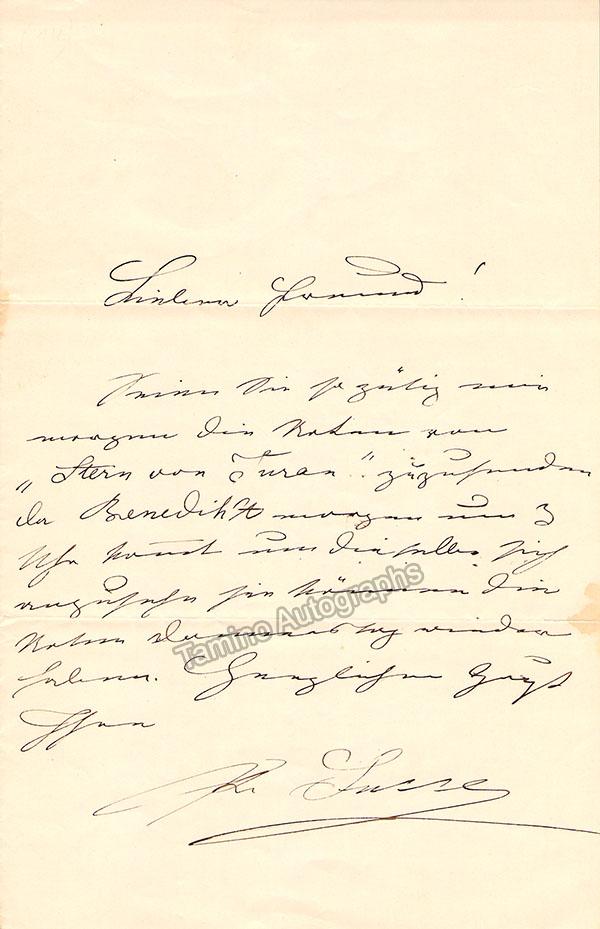 Lieber Freund!
Seien Sie so gütig mir
morgen die Noten von
„Stern von Turan" zuzusenden
da Benedikt morgen um 3
Uhr kommt um dieselben sich
anzusehn sie können die
Noten Donnerstag wieder
haben. Herzlichen Gruß
Ihr
Tamino Autographs